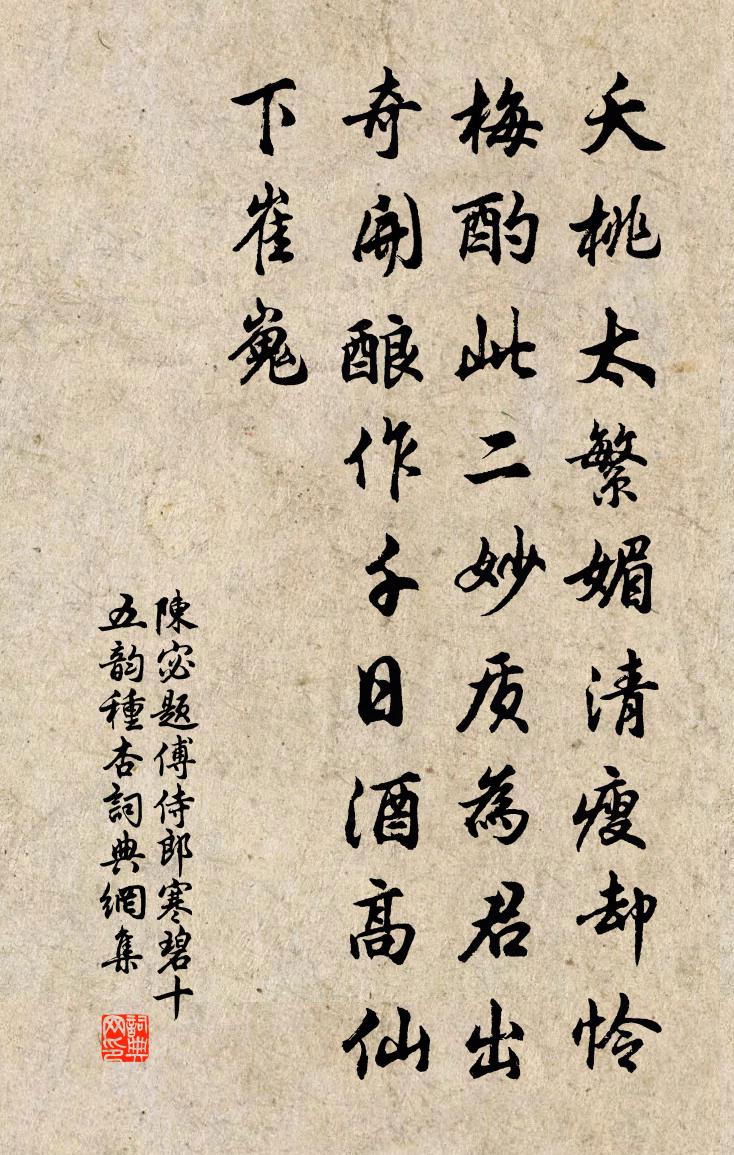 夭桃太繁媚清瘦却怜
梅酌此二妙质為君出
奇開酿作千日酒高仙
下崔嵬
陳宓题傅侍郎寒碧十
五韵種杏詞典網集
詞典网印